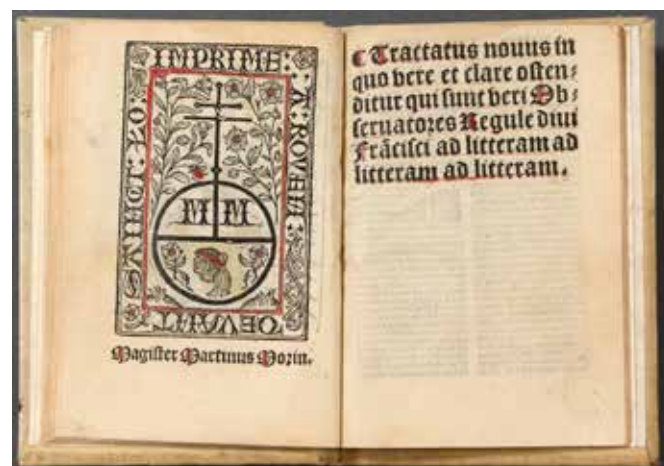 IMPRIME: A: ROVEN:
DEVANT
SAINCT: LO:
M M
Magister Martinus Morin.
Tractatus nouus in
quo vere et clare osten-
ditur qui sunt veri Ob-
seruatores Regule diui
Frãcisci ad litteram ad
litteram ad litteram.